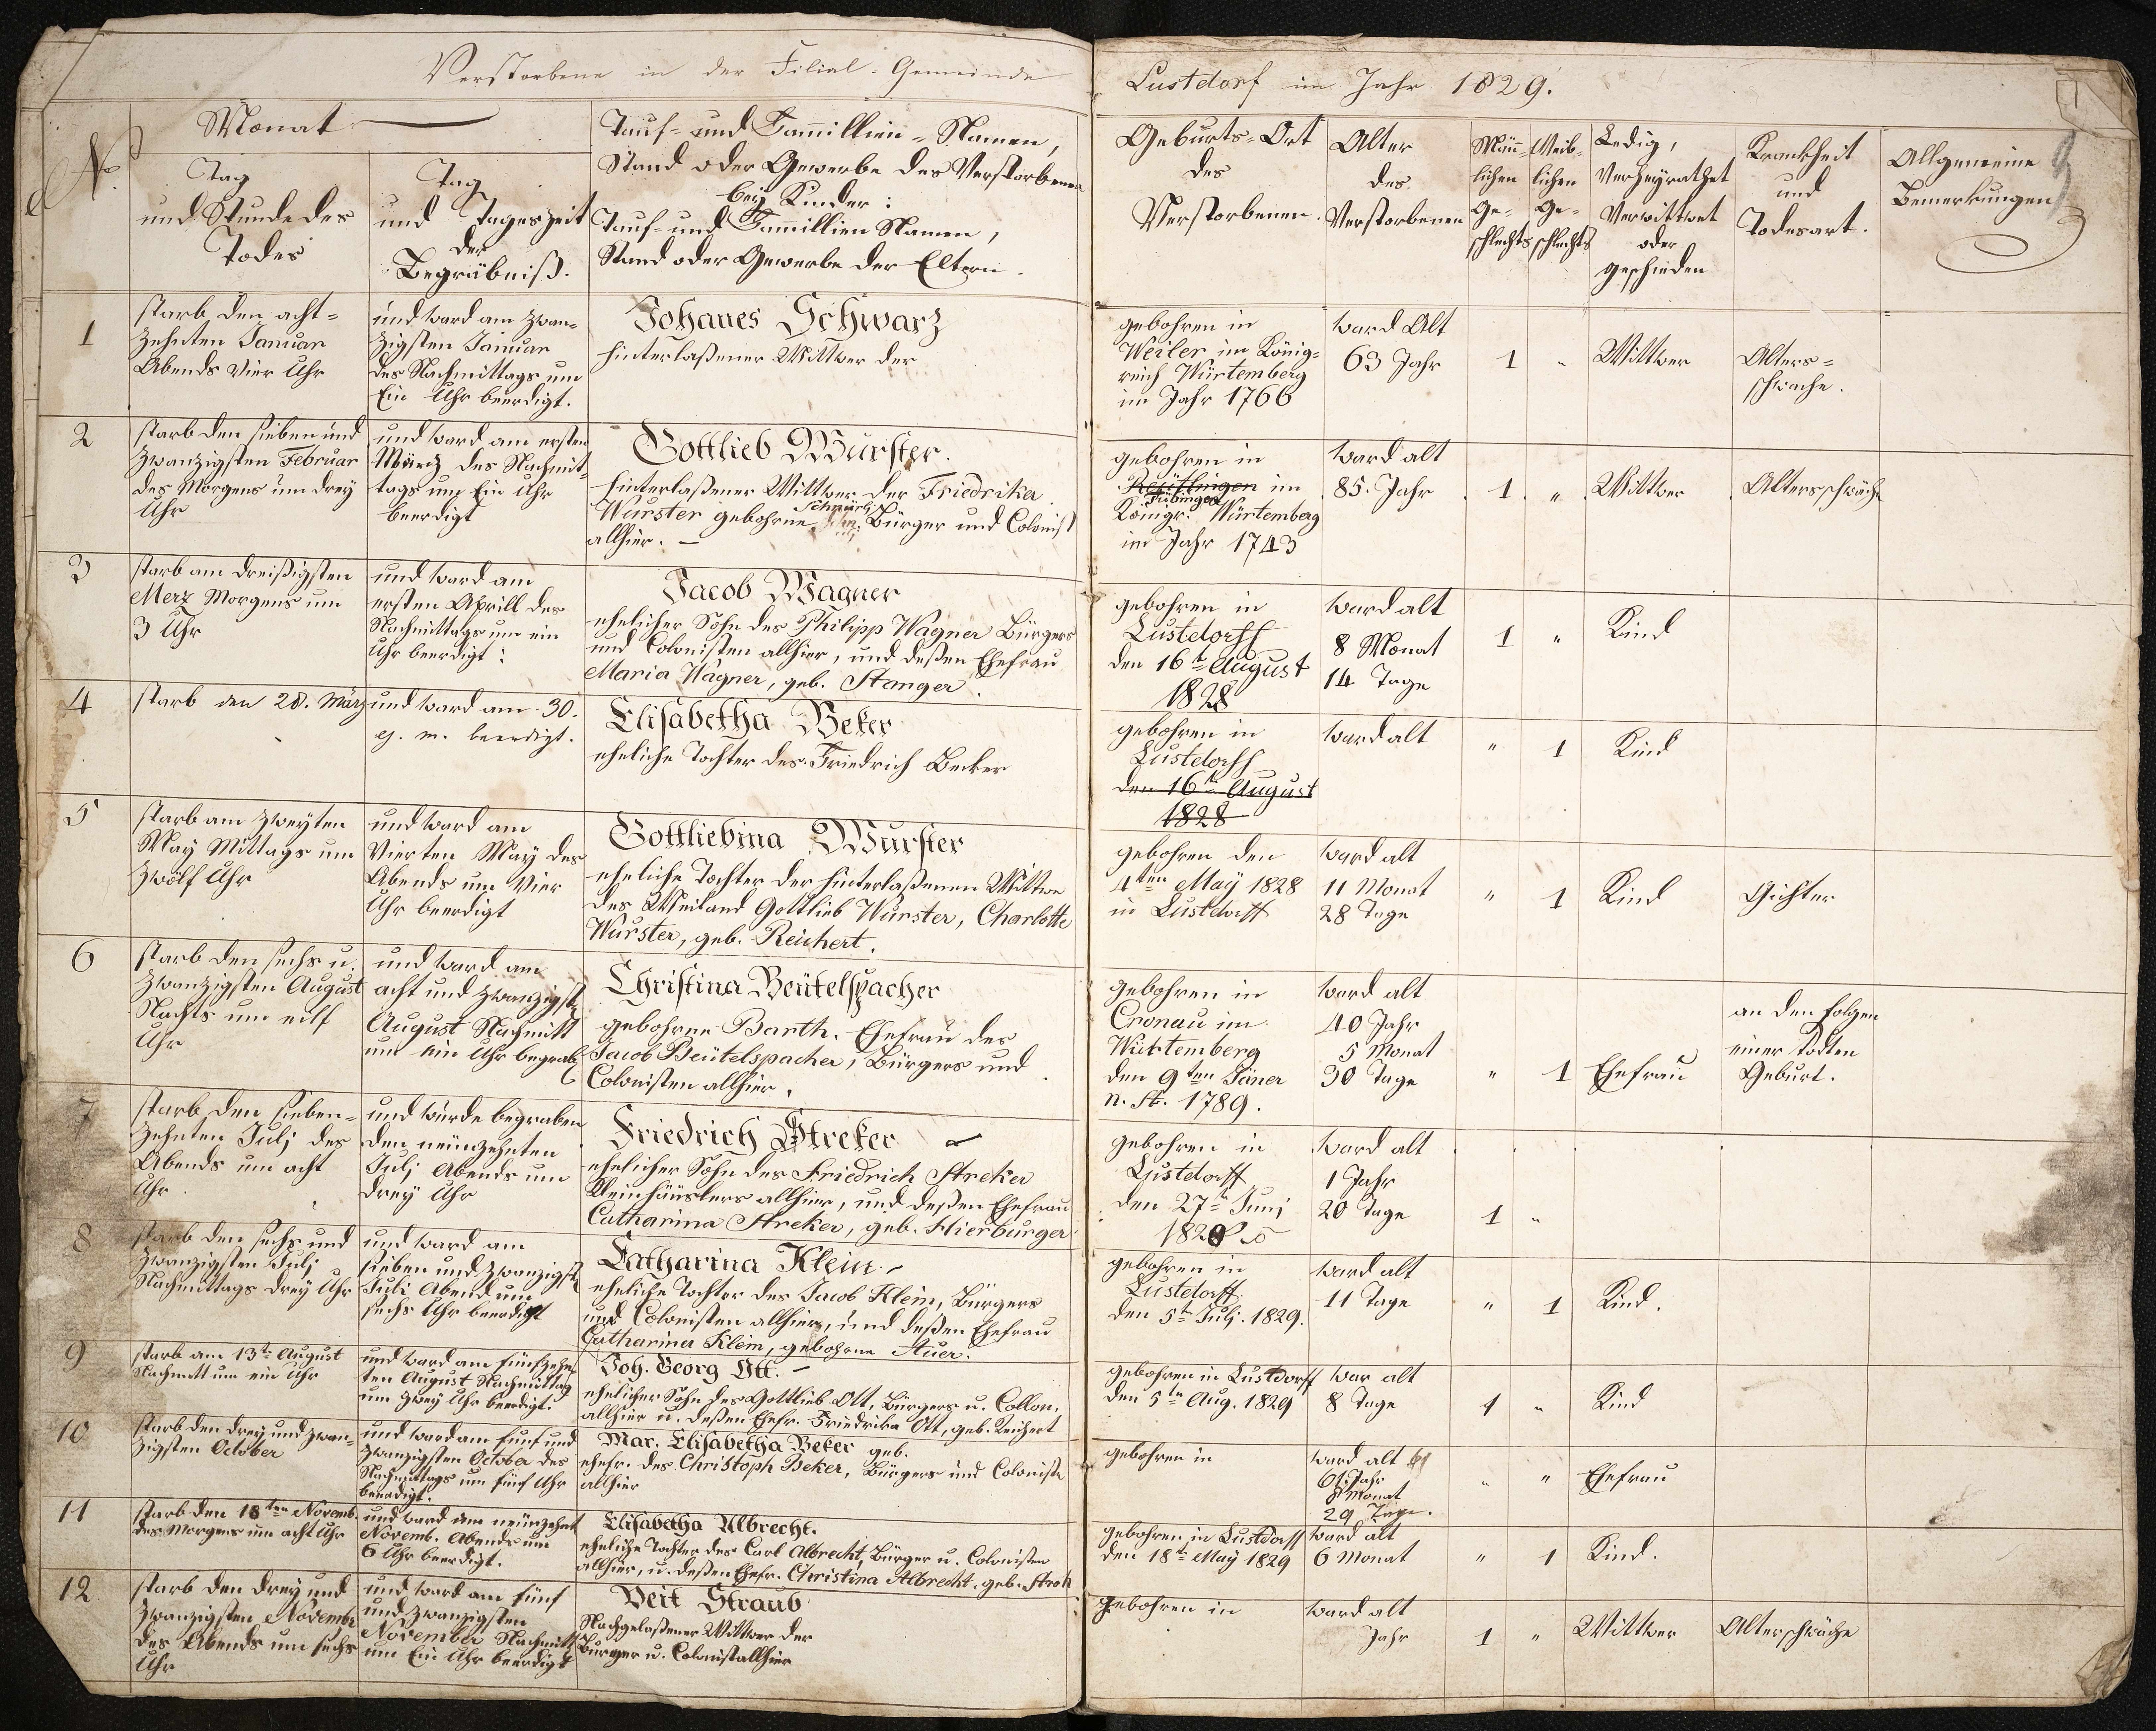 Verstorbene in der Filial-Gemeinde Lustdorf im Jahr 1829.
No.
Monat
Tag
und Stunde des
Todes
Tag
und Tageszeit
der
Begräbniß.
Tauf- und Familien-Namen,
Stand oder Gewerbe des Verstorbenen
bey Kinder:
Tauf- und Familien Namen,
Stand oder Gewerbe der Eltern.
Geburts-Ort
des
Verstorbenen.
Alter
des
Verstorbenen
Män-
lichen
Ge-
schlechts
Weib-
lichen
Ge-
schlechts
Ledig,
Verheyrathet
Verwittwet
oder
geschieden
Krankheit
und
Todesart.
Allgemeine
Bemerkungen
1
starb den acht-
zehnten Januar
Abends vier Uhr
und ward am zwan-
zigsten Januar
des Nachmittags um
Ein Uhr beerdigt.
Johanes Schwarz
hinterlaßener Wittwer der
gebohren in
Weiler im König-
reich Würtemberg
im Jahr 1766
ward Alt
63 Jahr
1
"
Wittwer
Alters-
schwache.
2
starb den sieben und
zwanzigsten Februar
des Morgens um drey
Uhr
und ward am ersten
März des Nachmit-
tags um Ein Uhr
beerdigt
Gottlieb Wurster.
hinterlaßener Wittwer der Friedrika
Wurster gebohrne Bürger und Colonist
allhier. —
gebohren in
im
Tübingen
Königr. Würtemberg
im Jahr 1743
ward alt
85. Jahr
1
"
Wittwer
Altersschwäche
3
starb am dreißigsten
Merz Morgens um
3 Uhr
und ward am
ersten Aprill des
Nachmittags um ein
Uhr beerdigt:
Jacob Wagner
ehelicher Sohn des Philipp Wagner Bürgers
und Colonisten allhier, und deßen Ehefrau
Maria Wagner, geb. Stanger.
gebohren in
Lustdorff
den 16t August
1828
ward alt
8 Monat
14 Tage
1
"
Kind
4
starb den 28. März
und ward am 30.
ej. m. beerdigt.
Elisabetha Beker
eheliche Tochter des Friedrich Becker
gebohren in
Lustdorff
den 16t August
1828
ward alt
"
1
Kind
5
starb am zweyten
May Mittags um
zwölf Uhr
und ward am
Vierten May des
Abends um Vier
Uhr beerdigt
Gottliebina Wurster
eheliche Tochter der hinterlaßenen Wittwe
des Weiland Gottlieb Wurster, Charlotte
Wurster, geb. Reichert.
gebohren den
4ten May 1828
in Lustdorff
ward alt
11 Monat
28 Tage
"
1
Kind
Gichter
6
starb den sechs u.
zwanzigsten August
Nachts um eilf
Uhr
und ward am
acht und zwanzigst
August Nachmitt
um ein Uhr begrab
Christina Beütelspacher
gebohrne Barth. Ehefrau des
Jacob Beütelspacher, Bürgers und
Colonisten allhier.
gebohren in
Cronau im
Würtemberg
den 9ten Jäner
n. St. 1789.
ward alt
40 Jahr
5 Monat
30 Tage
"
1
Ehefrau
an den folgen
einer todten
Geburt.
7
starb den sieben-
zehnten Julj des
Abends um acht
Uhr
und wurde begraben
den neünzehnten
Julj Abends um
drey Uhr
Friedrich Streker
ehelicher Sohn des Friedrich Streker
Kleinhäuslers allhier, und deßen Ehefrau
Catharina Streker, geb. Hierburger
gebohren in
Lustdorff
den 27t Junj
ward alt
1 Jahr
20 Tage
1
"
8
starb den sechs und
zwanzigsten Julj
Nachmittags drey Uhr
und ward am
sieben und zwanzigst
Juli Abend um
sechs Uhr beerdigt
Catharina Klein.
eheliche Tochter des Jacob Klein, Bürgers
und Colonisten allhier, und deßen Ehefrau
Catharina Klein, gebohrne Auer.
gebohren in
Lustdorff
den 5t Julj. 1829.
ward alt
11 Tage
"
1
Kind.
9
starb am 13t August
Nachmitt um ein Uhr
und ward am fünfzehn-
ten August Nachmittag
um zwey Uhr beerdigt.
Joh. Georg Ott.
ehelicher Sohn des Gottlieb Ott, Bürgers u. Collon.
allhier u. deßen Ehefr. Friedrika Ott, geb. Reichert
gebohren in Lustdorff
den 5tn Aug. 1829
war alt
8 Tage
1
"
Kind
10
starb den drey und zwan-
zigsten October
und ward am fünf und
zwanzigsten October des
Nachmittags um fünf Uhr
beerdigt.
Mar. Elisabetha Beker geb.
ehefr. des Christoph Beker, Bürgers und Coloniste
allhier
gebohren in
ward alt
61 Jahr
8 Monat
29 Tage.
"
"
Ehefrau
11
starb den 18ten Novemb.
des Morgens um acht Uhr
und ward am neünzehnt
Novemb. Abends um
6 Uhr beerdigt.
Elisabetha Albrecht.
eheliche Tochter des Carl Albrecht, Bürger u. Colonisten
allhier, u. deßen Ehefr. Christina Albrecht, geb. Stroh
gebohren in Lustdorff
den 18t May 1829
ward alt
6 Monat
"
1
Kind.
12
starb den drey und
zwanzigsten Novembr
des Abends um sechs
Uhr
und ward am fünf
und zwanzigsten
November Nachmitt
um Ein Uhr beerdigt
Veit Straub
Nachgelaßener Wittwer der
Burger u. Colonist allhier
gebohren in
ward alt
Jahr
1
"
Wittwer
Alterschwäche